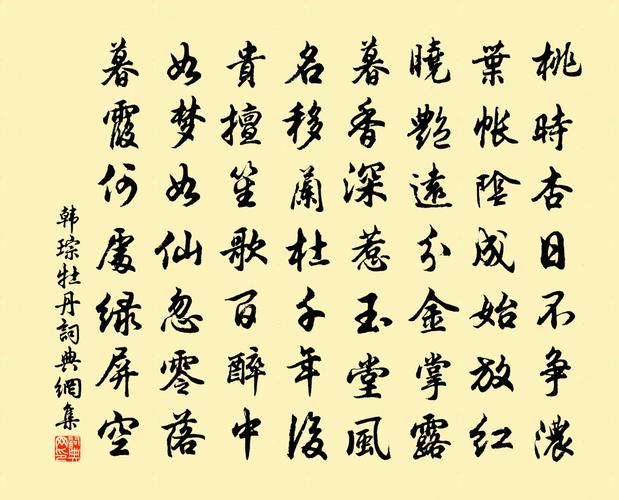 桃時杏日不争濃
葉帳陰成始放紅
曉艷遠分金掌露
暮香深惹玉堂風
名移蘭杜千年後
貴擅笙歌百醉中
如梦如仙忽零落
暮霞何處绿屏空
韩琮牡丹詞典網集